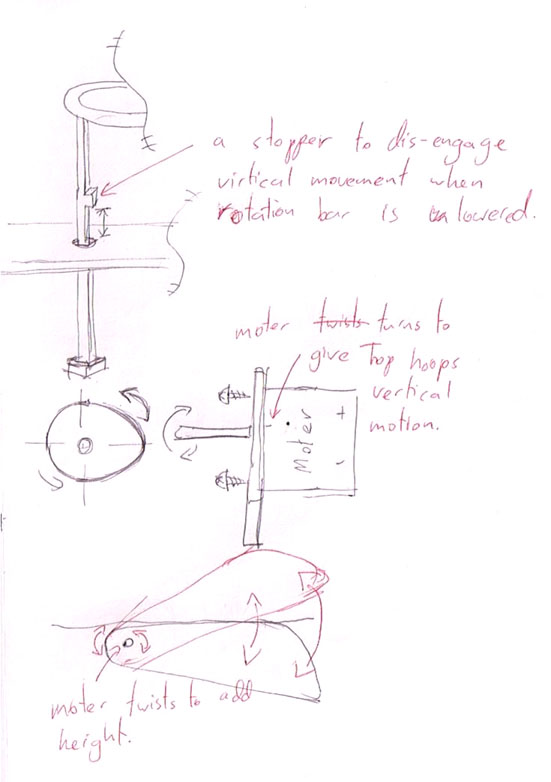 a stopper to dis-engage
virtical movement when
rotation bar is lowered.
moter twists turns to
give Top hoops
vertical
motion.
Moter
+
-
moter twists to add
height.